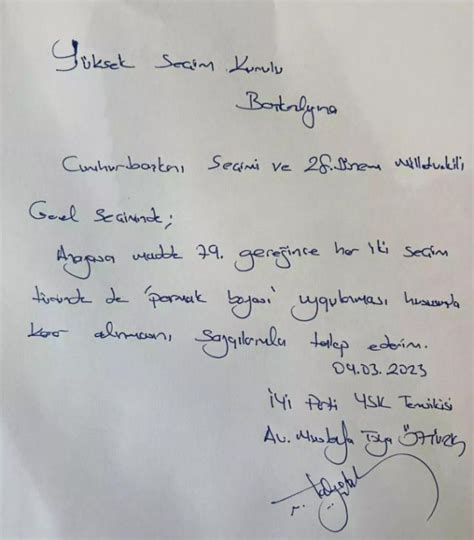 Yüksek Seçim Kurulu
Başkanlığına
Cumhurbaşkanı Seçimi ve 28. Dönem Milletvekili
Genel Seçiminde;
Anayasa madde 79. gereğince her iki seçim
türünde de 'parmak boyası' uygulaması hususunda
karar alınmasını saygılarımla talep ederim.
04.03.2023
İYİ Parti YSK Temsilcisi
Av. Mustafa Tolga ÖZTÜRK